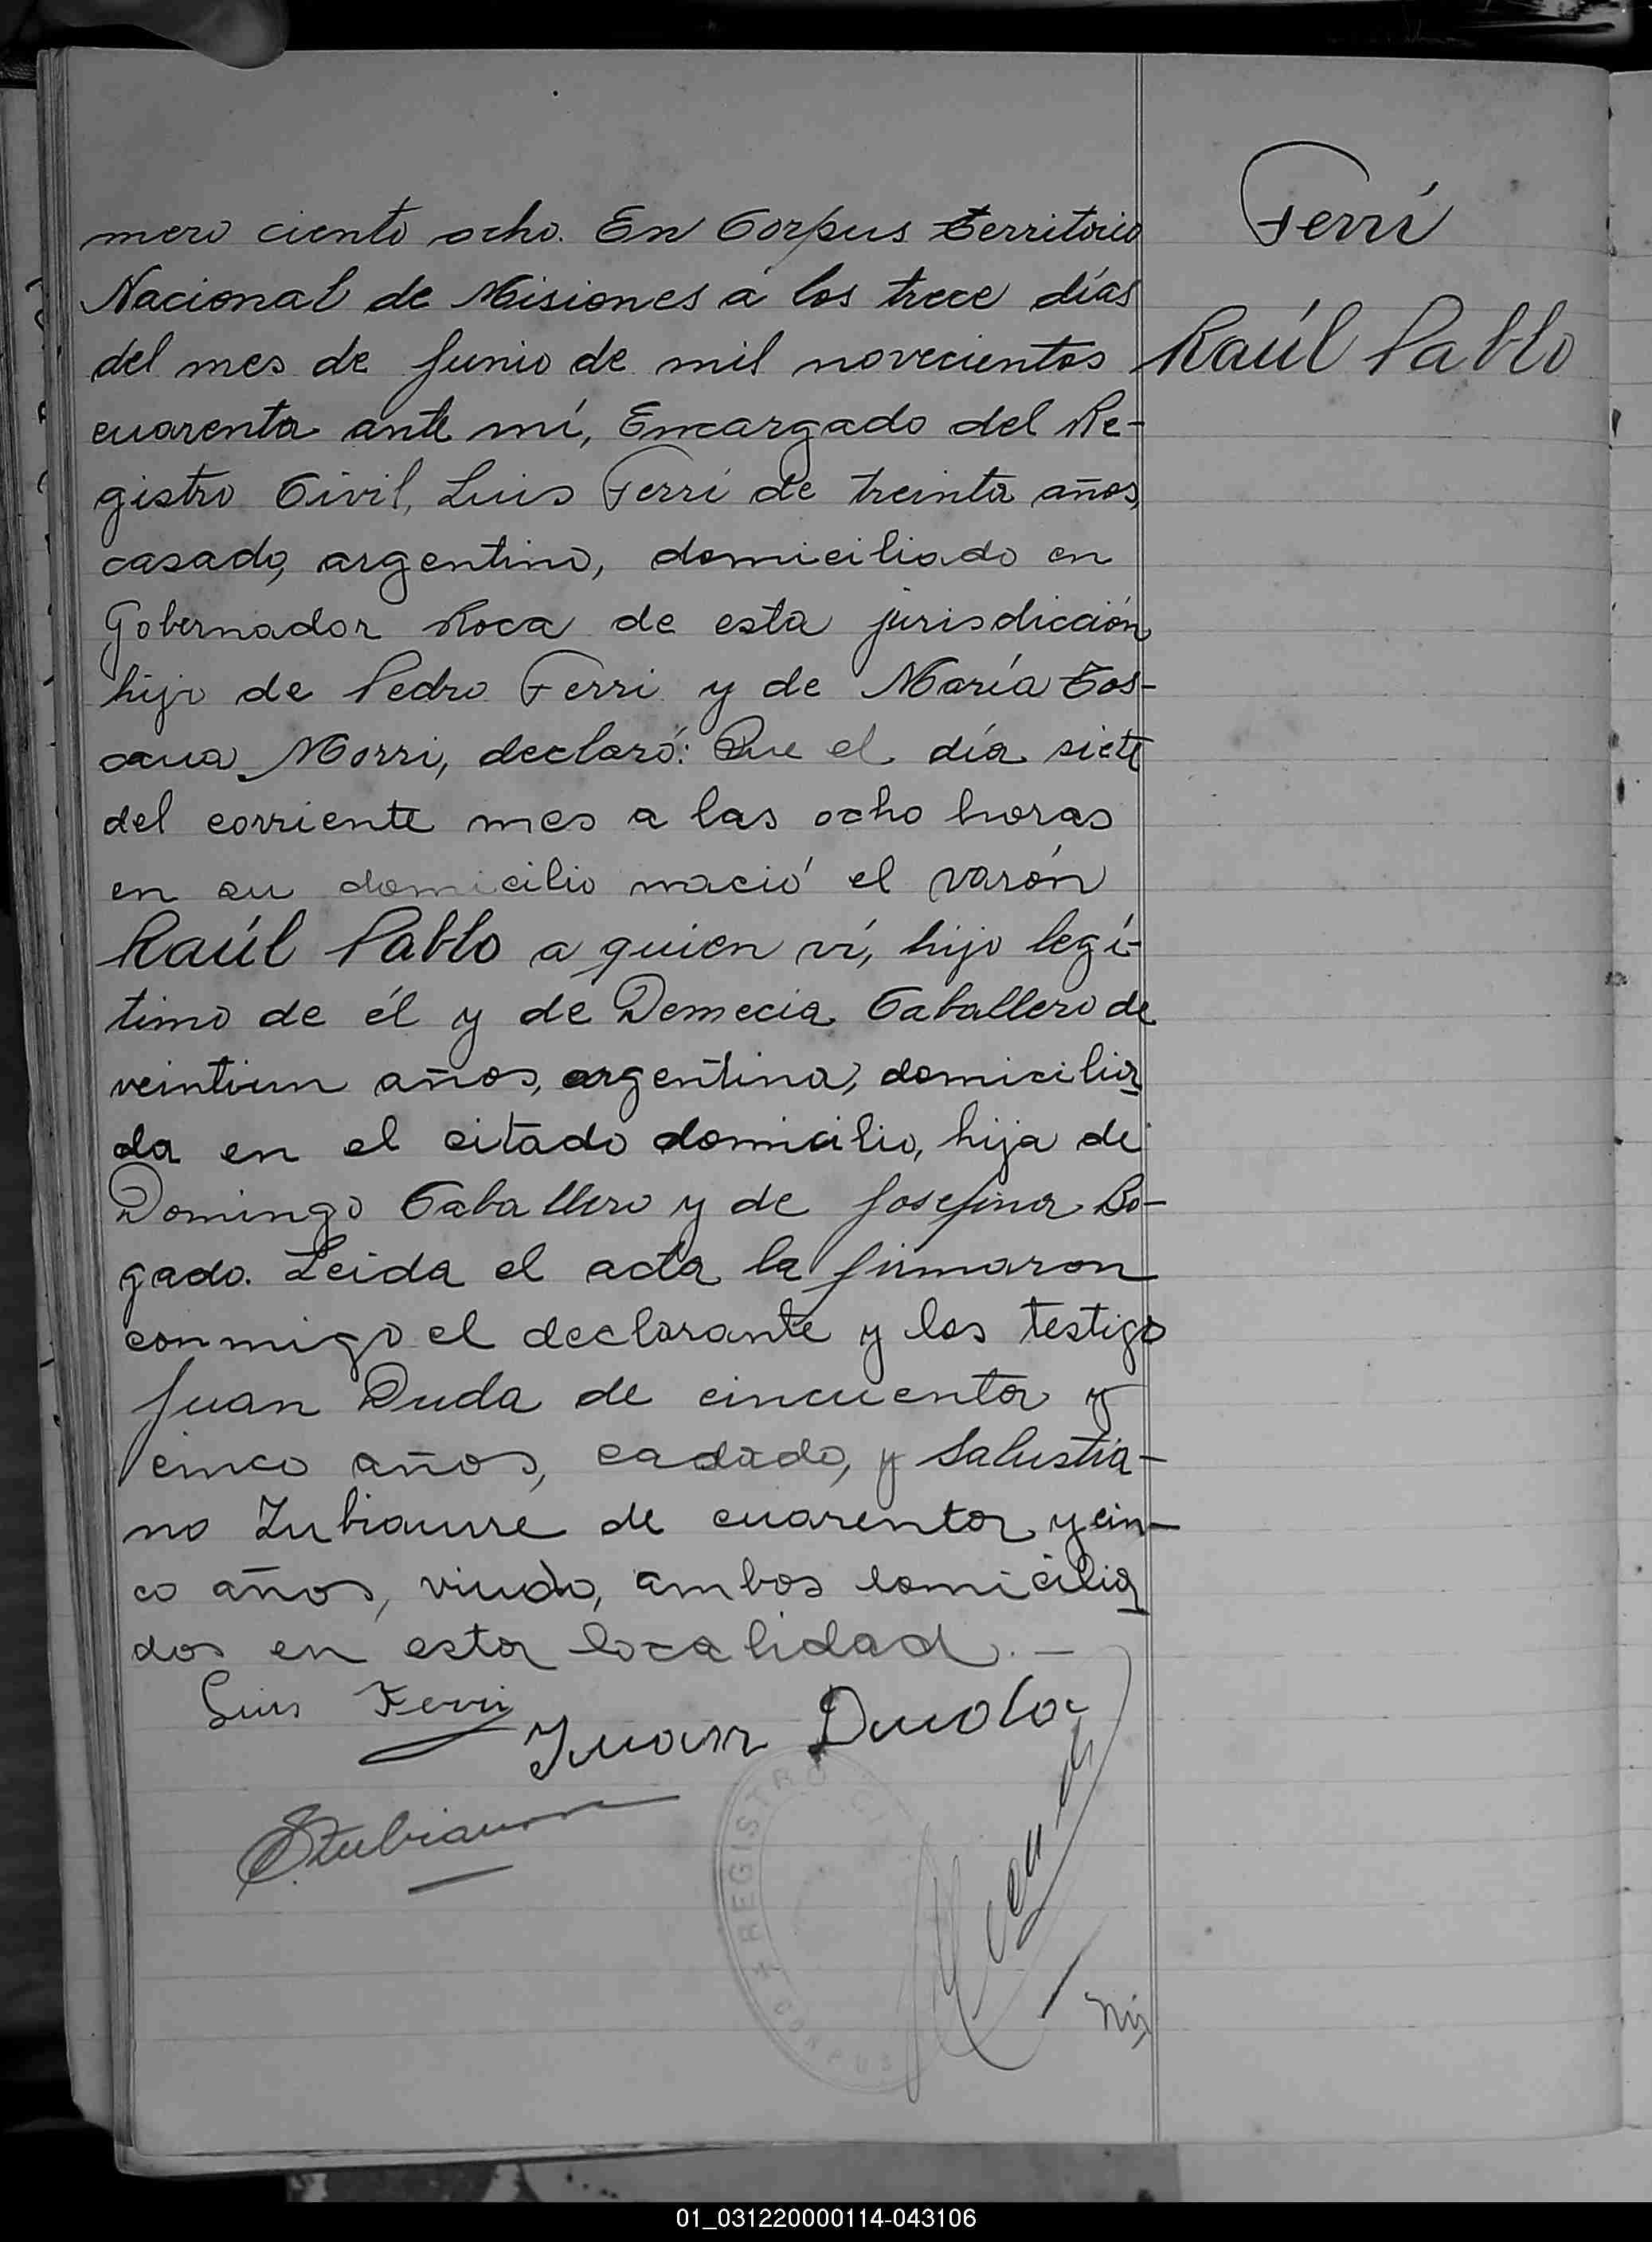 Ferri
Raúl Pablo
mero ciento ocho. En Corpus territorio
Nacional de Misiones a los trece días
del mes de Junio de mil novecientos
cuarenta ante mí, Encargado del Re-
gistro Civil, Luis Ferri de treinta años,
casado, argentino, domiciliado en
Gobernador Roca de esta jurisdicción
hijo de Pedro Ferri y de María Tos-
cana Morri, declaró: Que el día siete
del corriente mes a las ocho horas
en su domicilio nació el varón
Raúl Pablo a quien ví, hijo legí-
timo de él y de Demecia Caballero de
veintiun años, argentina, domicilia
da en el citado domicilio, hija de
Domingo Caballero y de Josefina Bo-
gado. Leida el acta la firmaron
conmigo el declarante y los testigo
Juan Duda de cincuenta y
cinco años, cadado, y Salustia-
no Zubiaurre de cuarenta y cin-
co años, viudo, ambos domicilia
dos en esta localidad.—
Luis Ferri
Juan Duda
SZubiaurre
REGISTRO CI
CORPUS
01_031220000114-043106